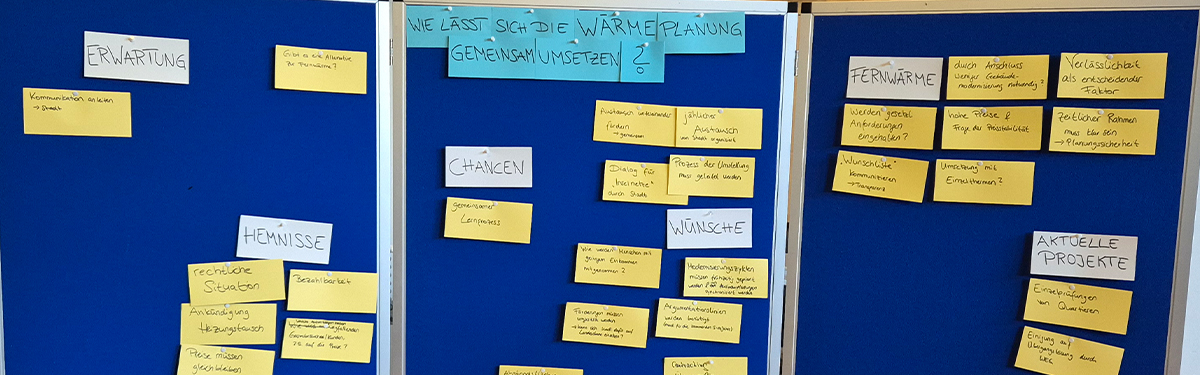 ERWARTUNG
Gibt es eine Alternative
zur Fernwärme?
Kommunikation anleiten
→ Stadt
HEMNISSE
rechtliche
Situation
Bezahlbarkeit
Ankündigung
Heizungstausch
2.B. auf die Preise?
Preise müssen
gleichbleiben
WIE LÄSST SICH DIE WÄRMEPLANUNG
GEMEINSAM UMSETZEN ?
Austausch untereinander
fördern
→ gemeinsam
jährlicher
Austausch
von Stadt organisiert
CHANCEN
Dialog für
"Inselnetze"
durch Stadt
Prozess der Umstellung
muss geleitet werden
gemeinsamer
Lernprozess
WÜNSCHE
Wie werden Menschen mit
geringem Einkommen
mitgenommen?
Modernisierungszyklen
müssen frühzeitig geplant
werden
Förderungen müssen
werden
Argumentationslinien
werden benötigt
FERNWÄRME
durch Anschluss
weniger Gebäude-
modernisierung notwendig?
Verlässlichkeit
als entscheidender
Faktor
Werden gesetzl.
Anforderungen
eingehalten?
hohe Preise &
Frage der Preisstabilität
zeitlicher Rahmen
muss klar sein
→ Planungssicherheit
"Wunschliste"
kommunizieren
→ Transparenz
Umsetzung mit
Einzelthermen?
AKTUELLE
PROJEKTE
Einzelprüfungen
von Quartieren
Einigung auf
Übergangslösung durch
WEG